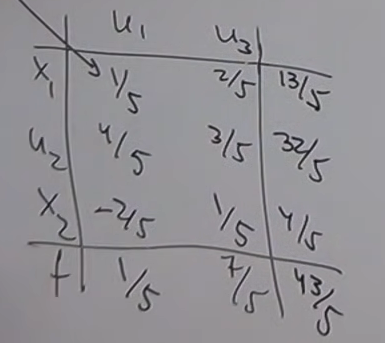 u₁ u₃
x₁ 1/5 2/5 13/5
u₂ 4/5 3/5 32/5
x₂ -2/5 1/5 4/5
f 1/5 7/5 43/5